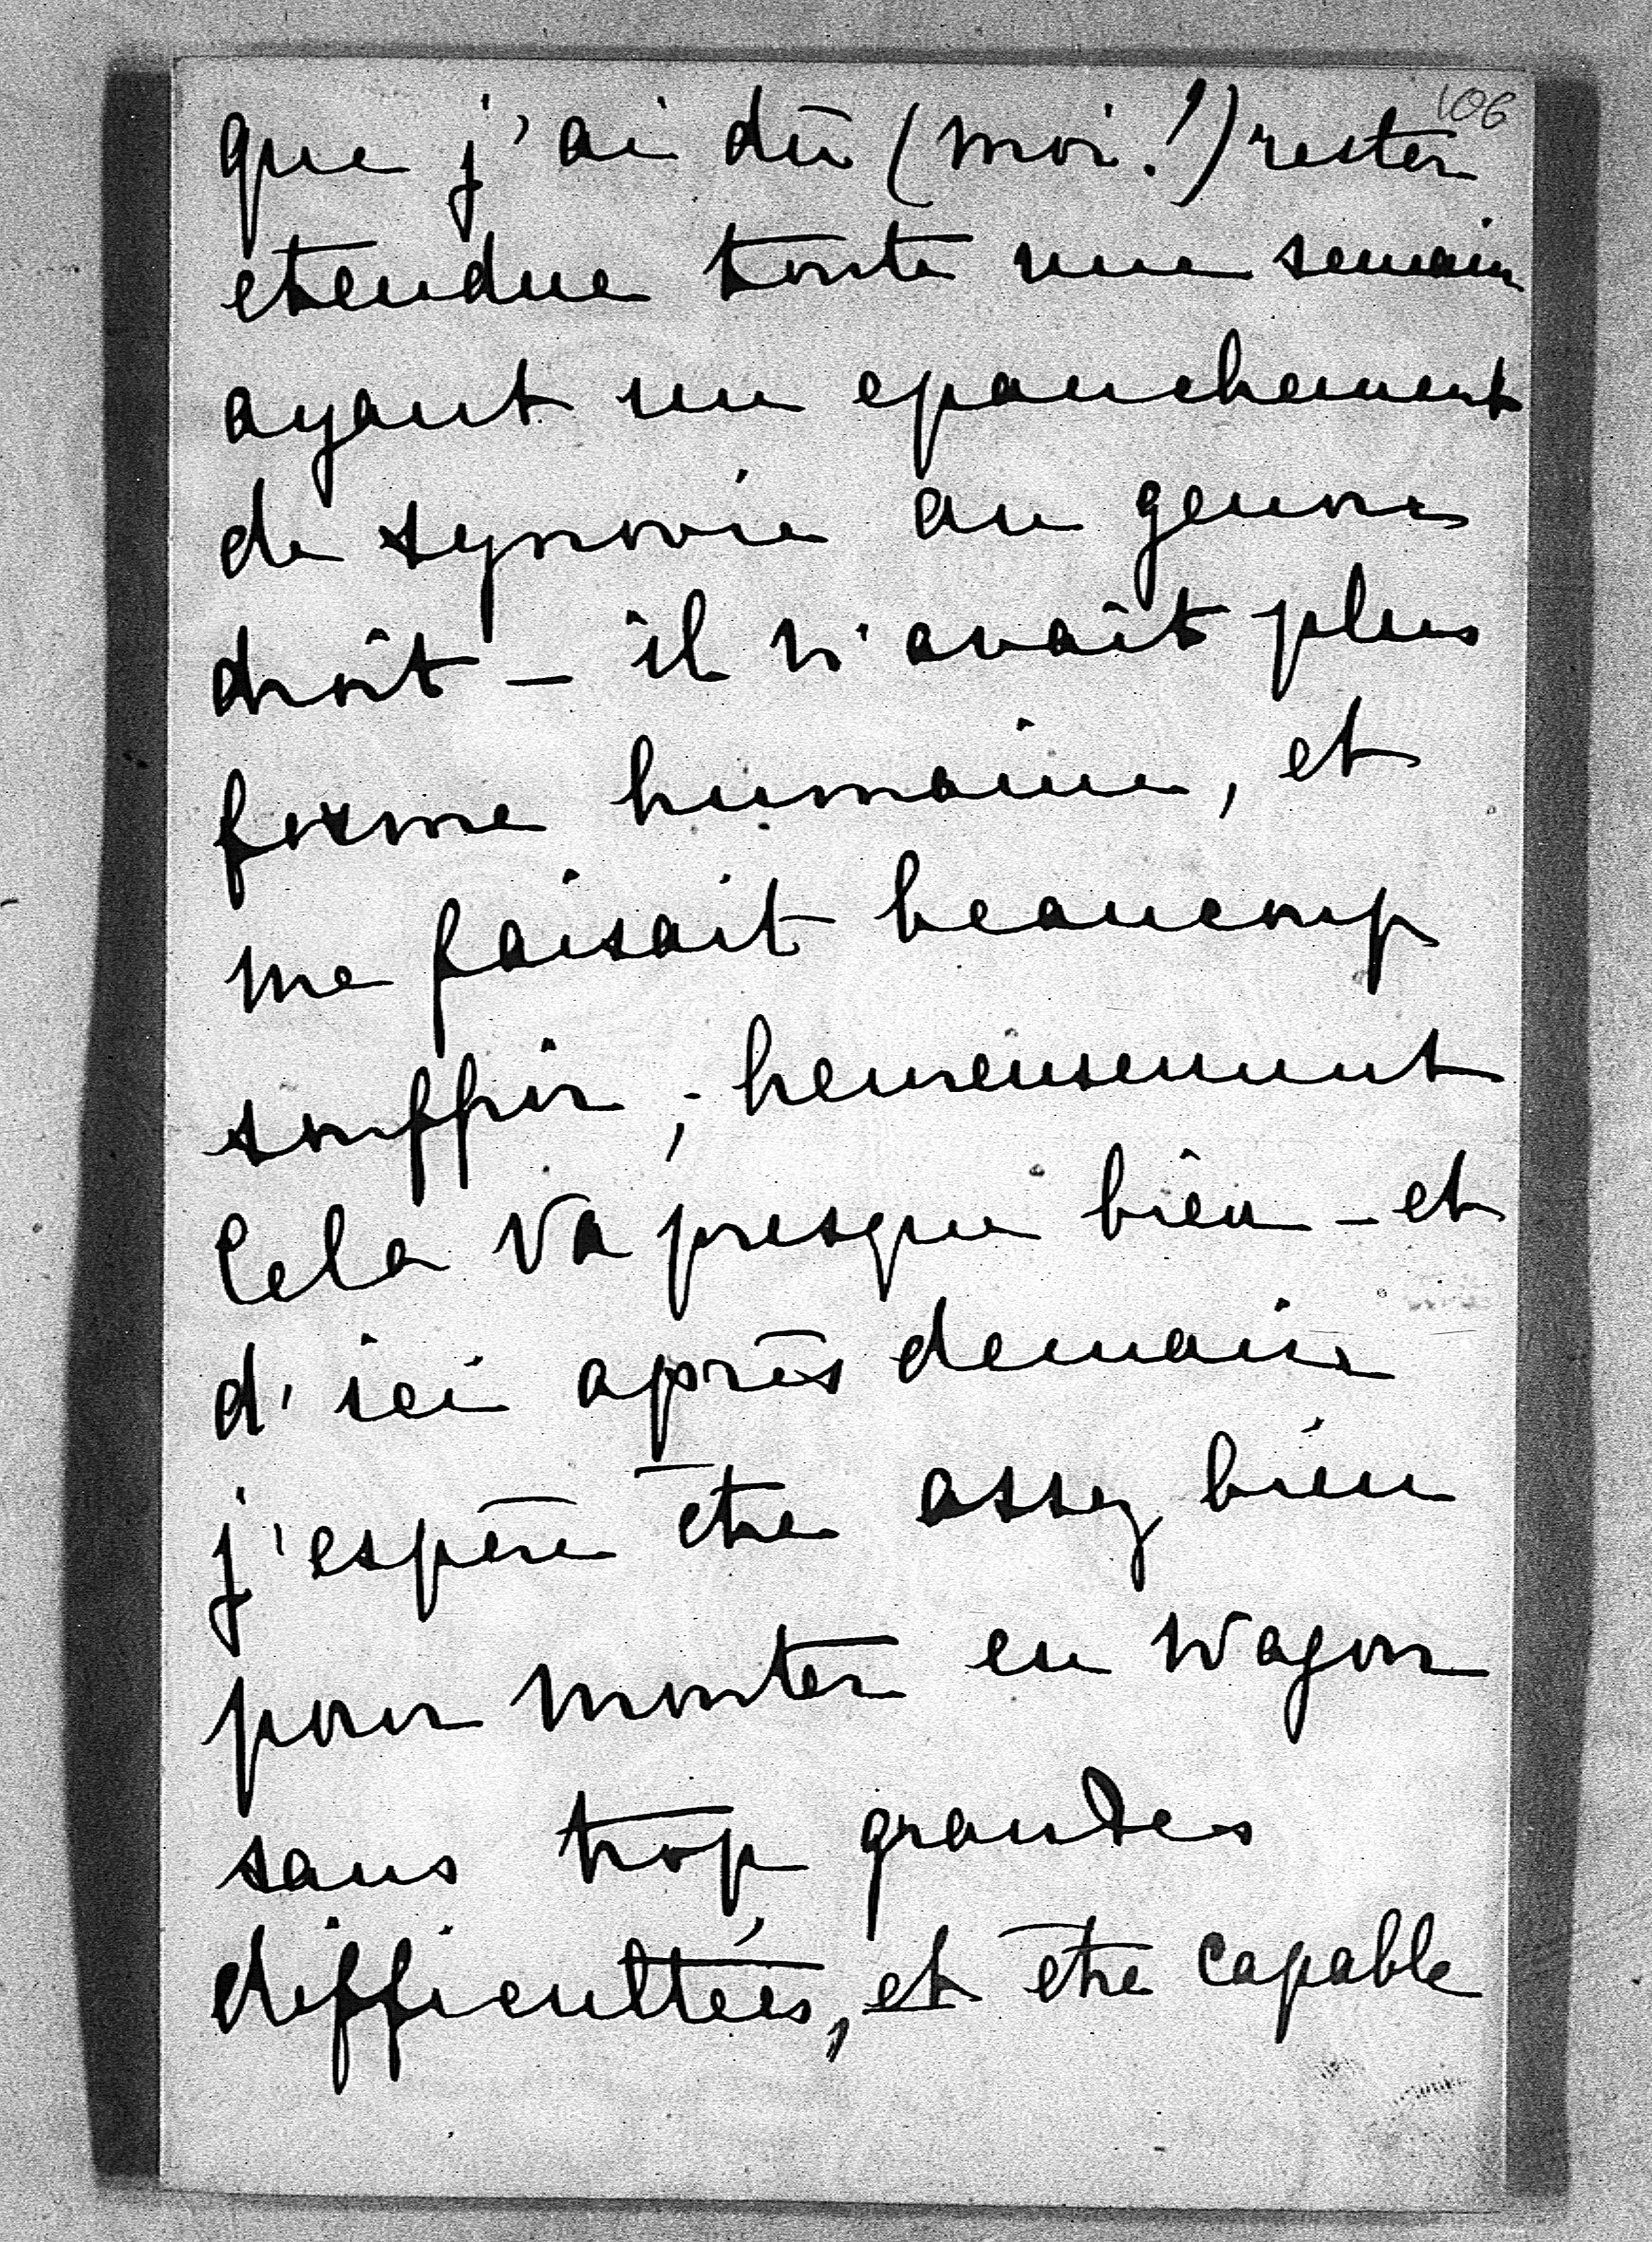 106
que j'ai dû (moi!) rester
etendue toute une semaine
ayant un epanchement
de synovie au genou
droit - il n'avait plus
forme humaine, et
me faisait beaucoup
souffrir; heureusement
Cela va presque bien - et
d'ici après demain
j'espère être assez bien
pour monter en wagon
sans trop grandes
difficultées, et être capable